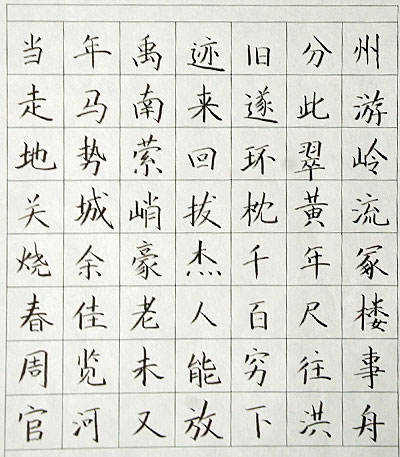 当年禹迹旧分州
走马南来遂此游
地势萦回环翠岭
关城峭拔枕黃流
烧余豪杰千年冢
春佳老人百尺楼
周览未能穷往事
官河又放下洪舟